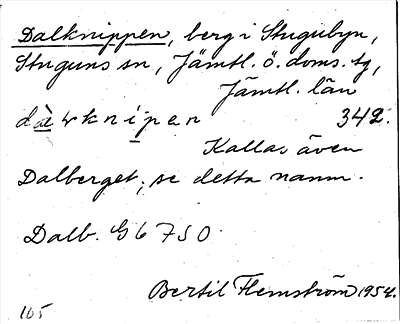 Dalknippen, berg i Stugubyn,
Stuguns sn, Jämtl. ö. doms. tg,
Jämtl. län
342.
Kallas även
Dalberget; se detta namn.
Dalb. G 6 7 5 0
Bertil Flemström 1954.
105